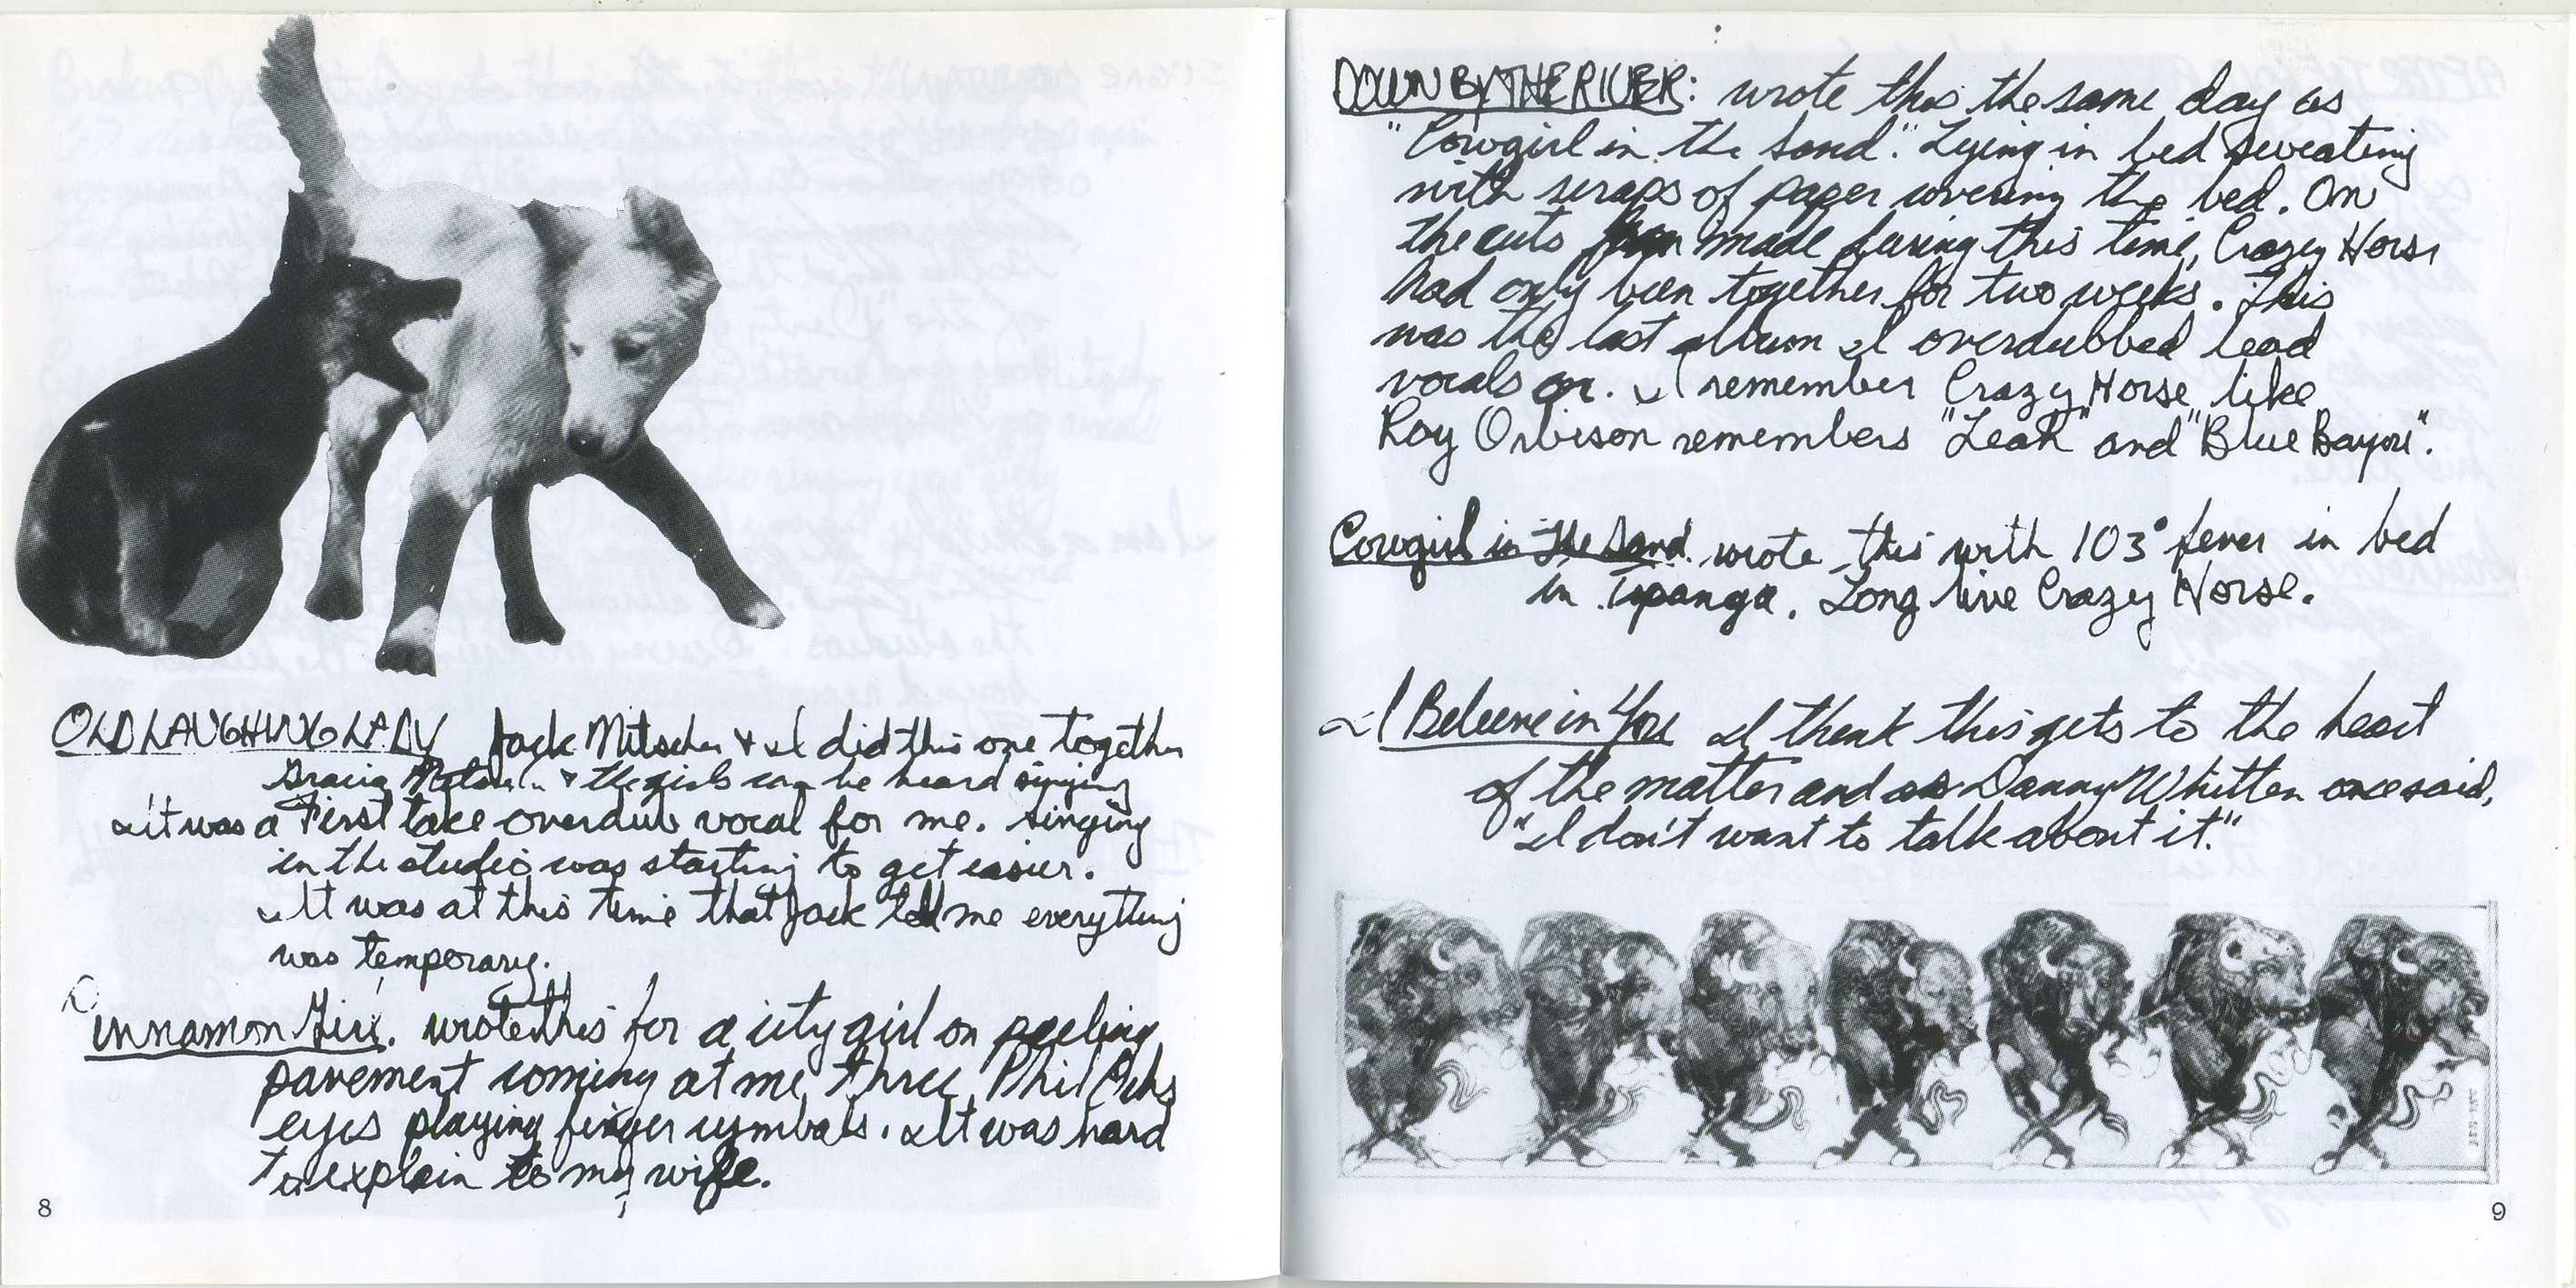 OLD LAUGHING LADY Jack Nitsche & I did this one together
Gracia Nitsche & the girls can be heard singing
it was a First take overdub vocal for me. singing
in the studio was starting to get easier.
It was at this time that Jack told me everything
was temporary.
Cinnamon Girl. wrote this for a city girl on peeling
pavement coming at me thru Phil Ochs
eyes playing finger cymbals. It was hard
to explain to my wife.
8
DOWN BY THE RIVER: wrote this the same day as
"Cowgirl in the Sand." Lying in bed sweating
with scraps of paper covering the bed. On
the cuts made during this time, Crazy Horse
had only been together for two weeks. This
was the last album I overdubbed lead
vocals on. I remember Crazy Horse like
Roy Orbison remembers "Leah" and "Blue Bayou".
Cowgirl in the Sand. wrote this with 103° fever in bed
in Topanga. Long live Crazy Horse.
I Believe in You I think this gets to the heart
of the matter and as Danny Whitten once said,
"I don't want to talk about it."
9